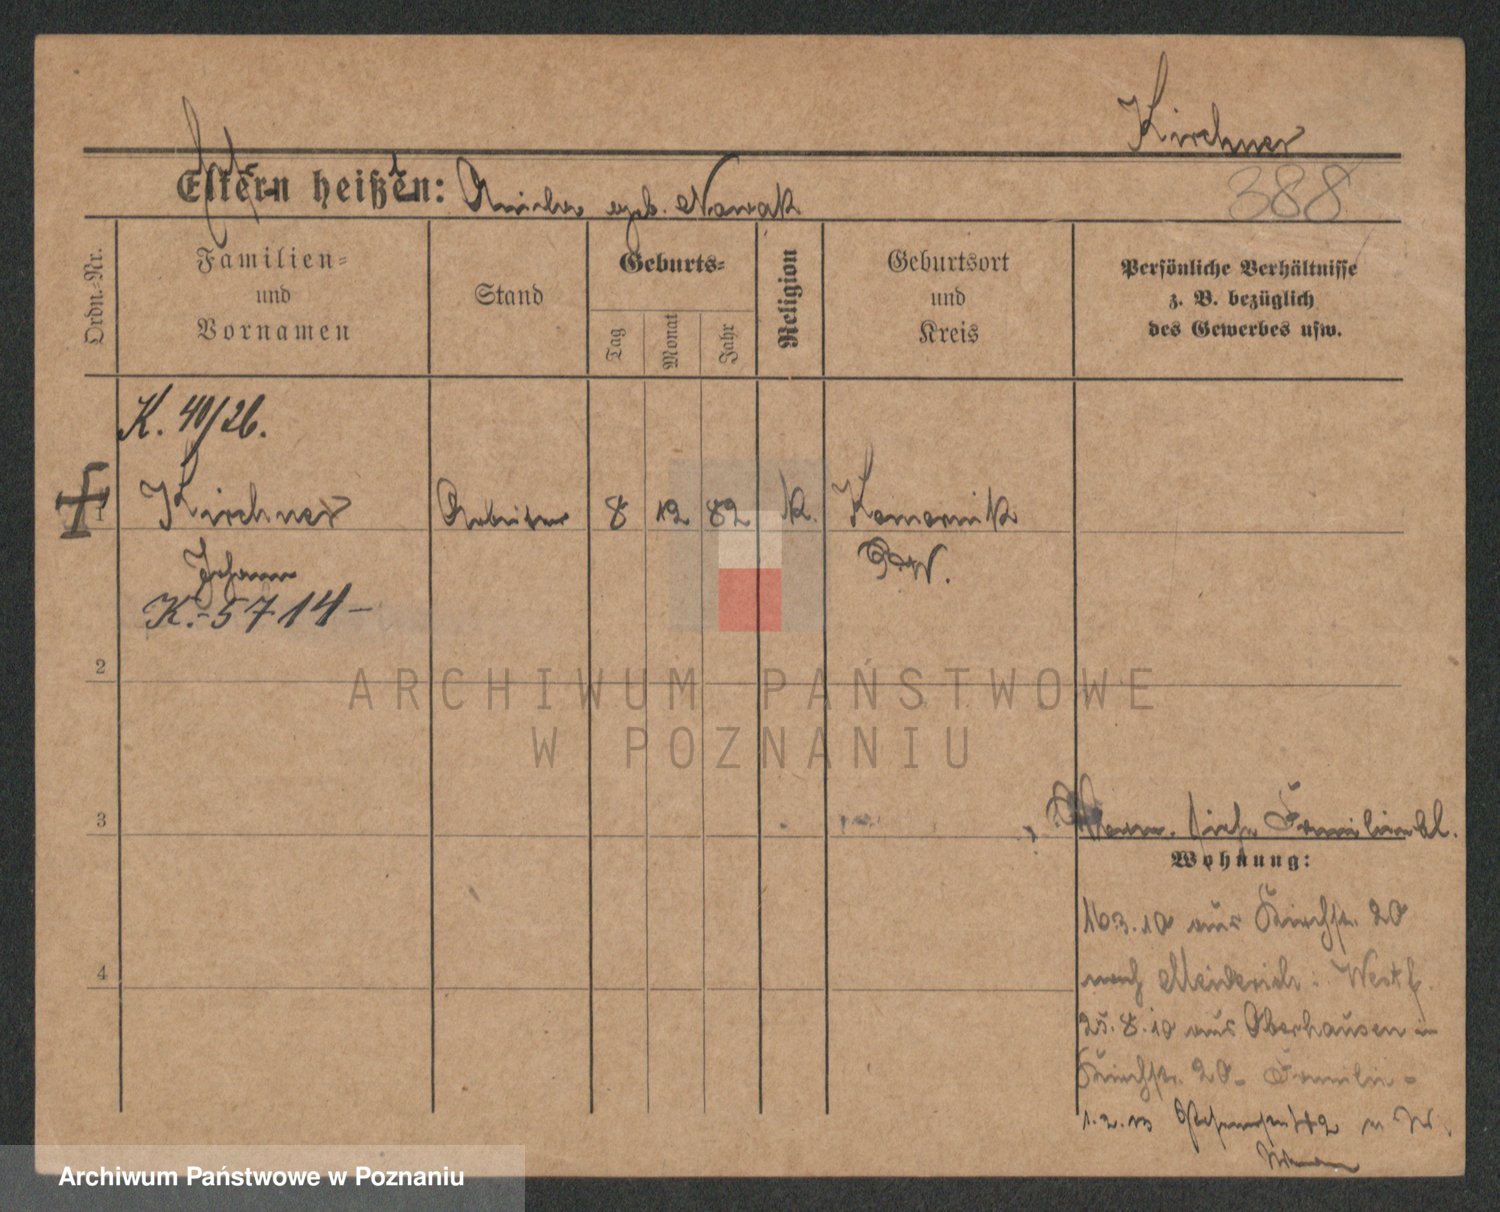 Kirchner
388
Eltern heißen: geb. Nowak
Ordn.-Nr.
Familien-
und
Vornamen
Stand
Geburts-
Tag
Monat
Jahr
Religion
Geburtsort
und
Kreis
Persönliche Verhältnisse
z. B. bezüglich
des Gewerbes usw.
K. 40/26.
1 Kirchner Arbeiter 8 12 82 K. Komornik
Johann P.W.
K.-5714-
2
ARCHIWUM PAŃSTWOWE
W POZNANIU
3
siehe Familienbl.
Wohnung:
16.3.10 aus Kirchstr. 20
4
nach Meiderich: Westf.
25.8.10 aus Oberhausen in
Kirchstr. 20- Familie-
1.2.13
Archiwum Państwowe w Poznaniu